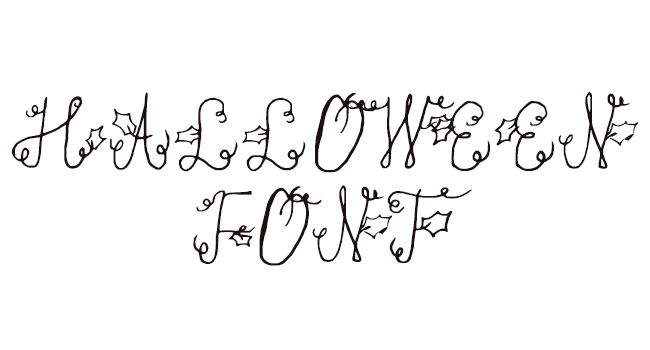 HALLOWEEN
FONT